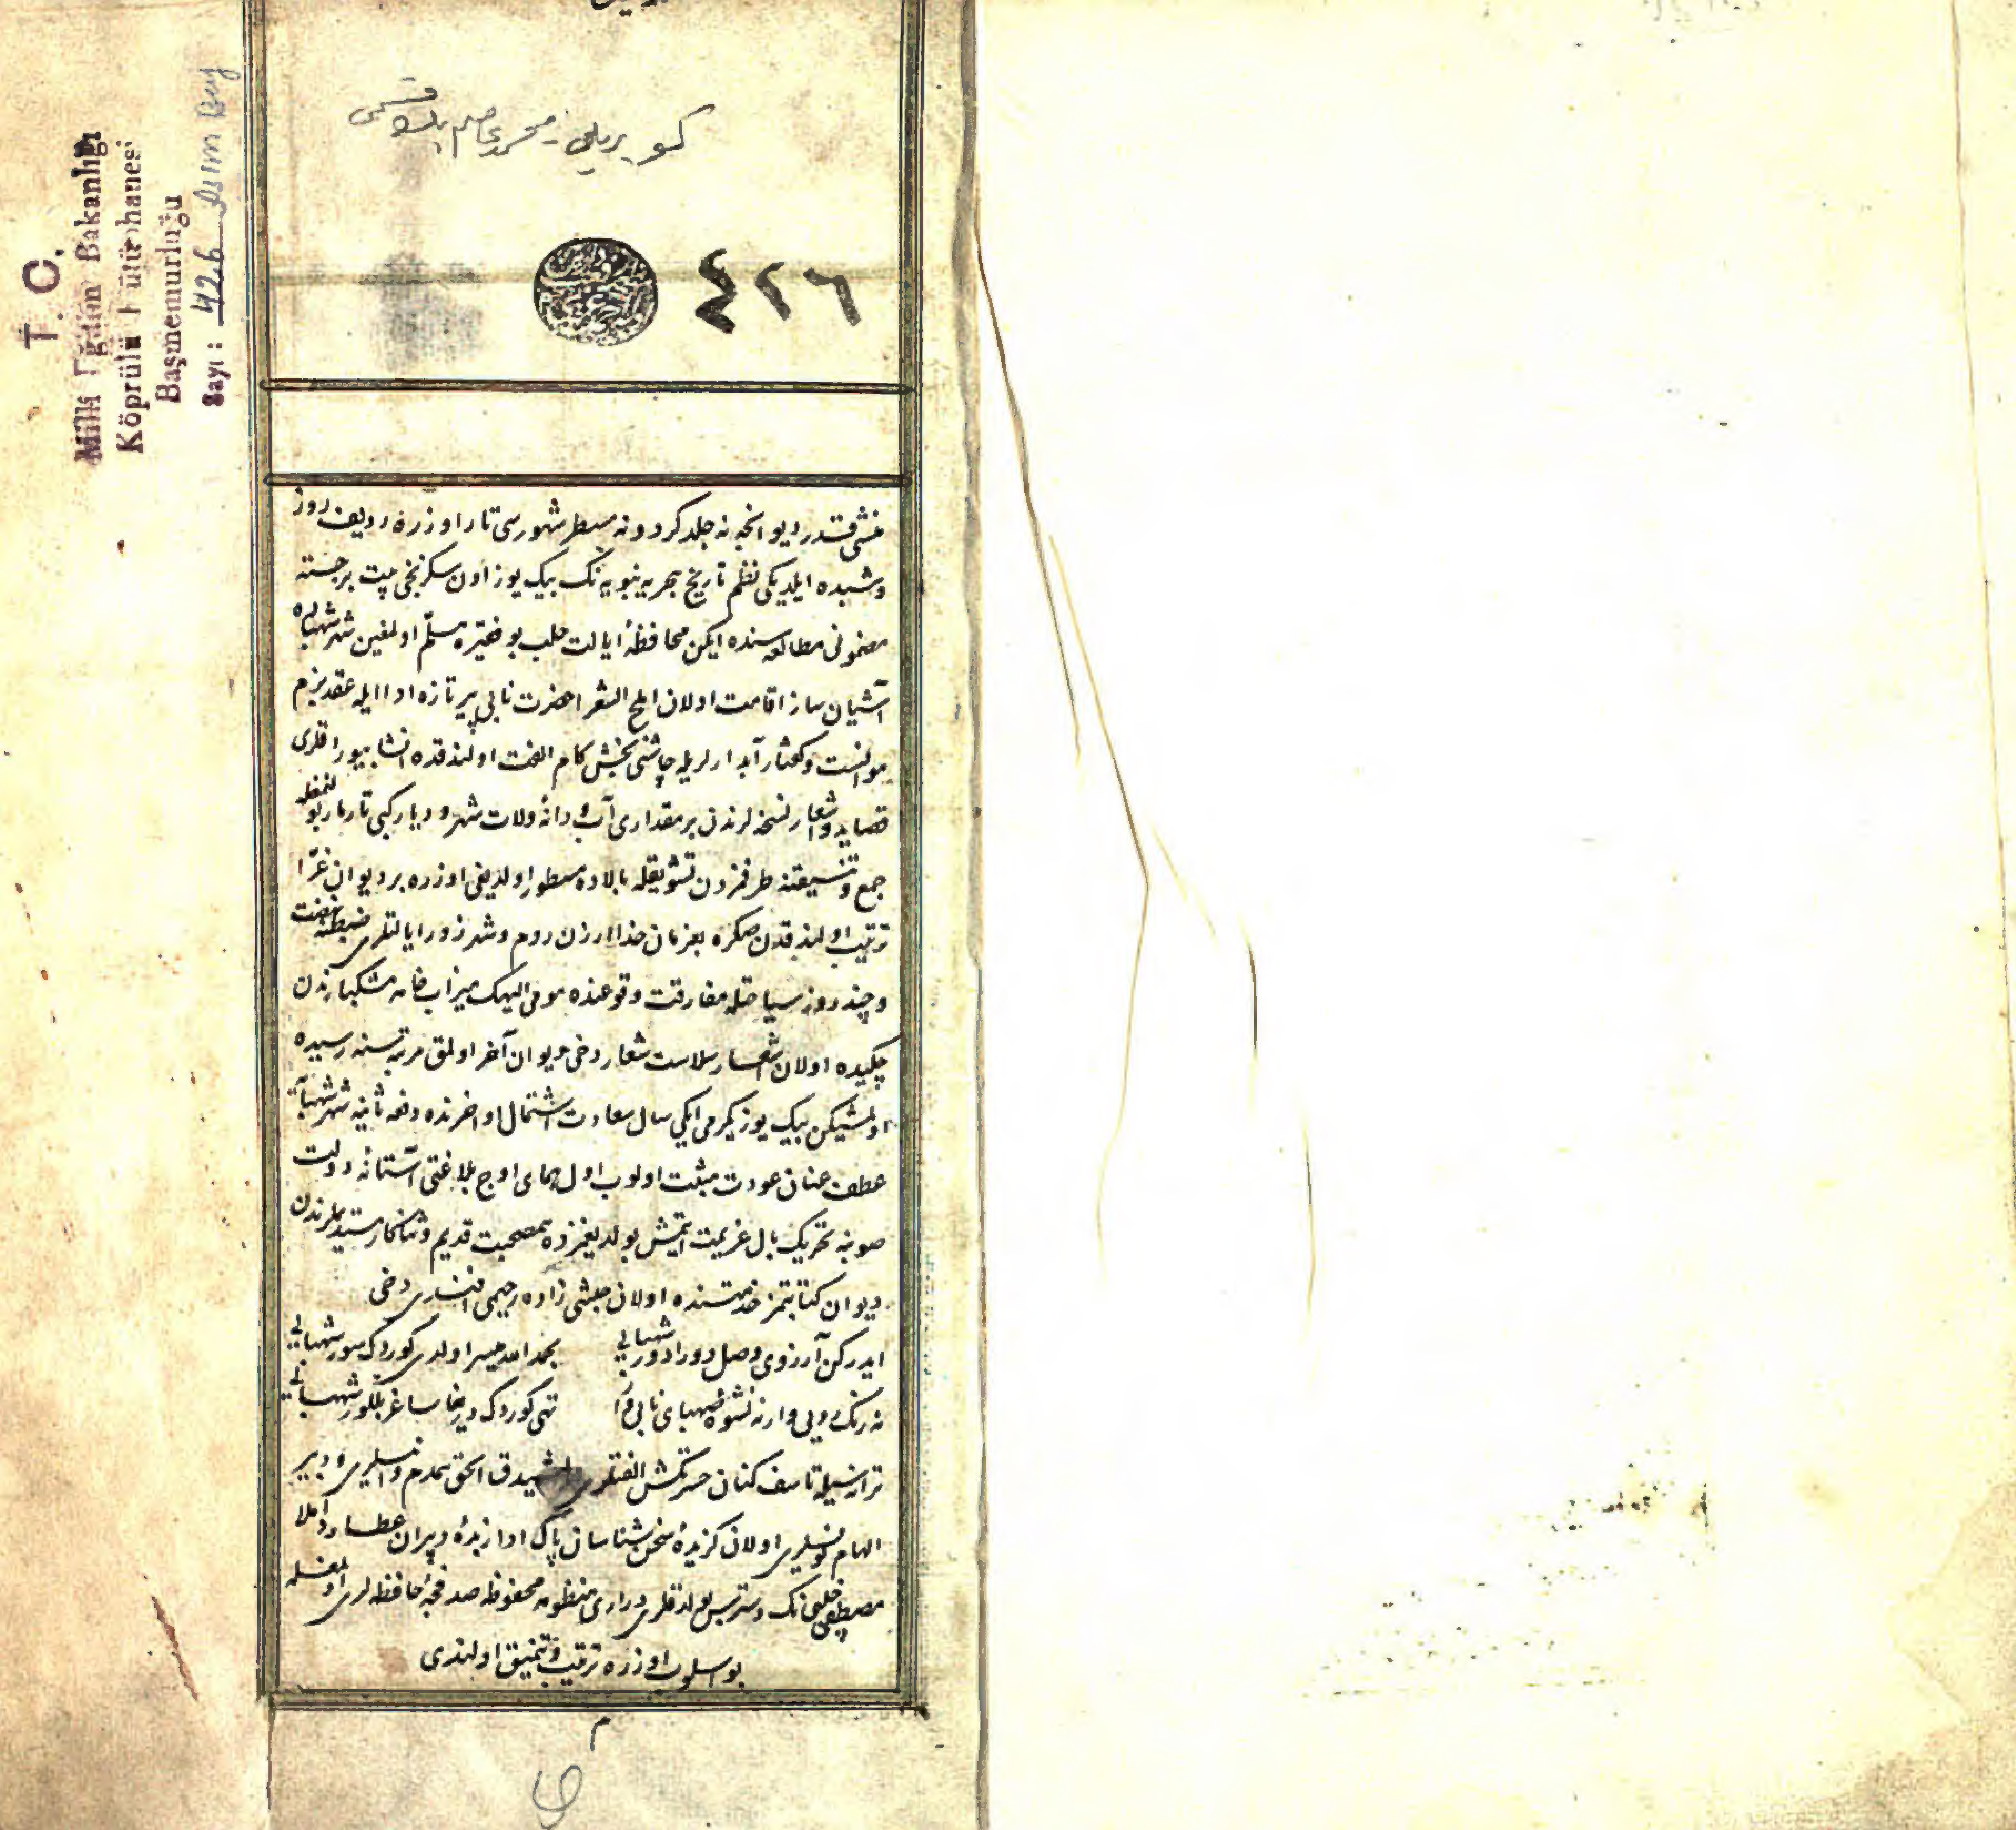 كوپريلي محمد عاصم بك قسمى
٤٢٦
T. C.
Milli Eğitim Bakanlığı
Köprülü Kütüphanesi
Başmemurluğu
Sayı : 426 Asım Bey
منشئ قدر ديوانچه نه جلد كردونه مسطر شهورسى تار اوزره رديف روز
وشبده ايلديكى نظم تاريخ هجريه نبويه نك بيك يوز اون سكزنجى بيت برجسته
مضمونى مطالعه سنده ايكن محافظهٔ ايالت حلب بو فقيره مسلّم اولمغين شهر شهباده
آشيان ساز اقامت اولان املح الشعرا حضرت نابى پير تازه ادا ايله عقد بزم
موانست وكفتار آبدارلريله چاشنى بخش كام الفت اولندقده انشا بيوردقلرى
قصايد واشعار نسخه لرندن بر مقدارى آب ودانهٔ ولات شهر و ديار كبى تارمار بولنمغله
جمع وتنسيقنه طرفمزدن تشويقله بالاده مسطور اولديغى اوزره بر ديوان غرّا
ترتيب اولندقدن صكره بفرمان خدا ارزن روم وشهرزور ايالتلرى ضبطنه نهضت
وچند روز سياحتله مفارقت وقوعنده مومى اليهك ميزاب خامهٔ مشكبارندن
چكيده اولان اشعار سلاست شعار دخى ديوان آخر اولمق مرتبه سنه رسيده
اولمشيكن بيك يوز يكرمى ايكى سال سعادت اشتمال اواخرنده دفعهٔ ثانيه شهر شهبايه
عطف عنان عودت مثبت اولوب اول هماى اوج بلاغتى آستانهٔ دولت
صوبنه تحريك بال عزيمت ايتمش بولديغمزده مصحبت قديم وثناكار مستديملرندن
ديوان كتابتمز خدمتنده اولان حبشى زاده رحيمى افندى دخى
ايدركن آرزوى وصل دورادور شهبايى بحمد الله ميسر اولدى كوردك سور شهبايى
نه رنك وبوى وار نه نشوهٔ صهباى نابى تهى كوردك دريغا ساغر بللور شهبايى
ترانه سيله تاسف كنان حسرتكش الفتلرى ايدق الحق همدم وانيسلرى ودبير
الهام نويسلرى اولان كزيدهٔ سخن شناسان پاك ادا زبدهٔ دبيران عطارد املا
مصطفى چلبى نك دسترس بولدقلرى درارى منظومهٔ محفوظهٔ صدفچهٔ حافظه لرى اولمغله
بو اسلوب اوزره ترتيب وتنميق اولندى
م